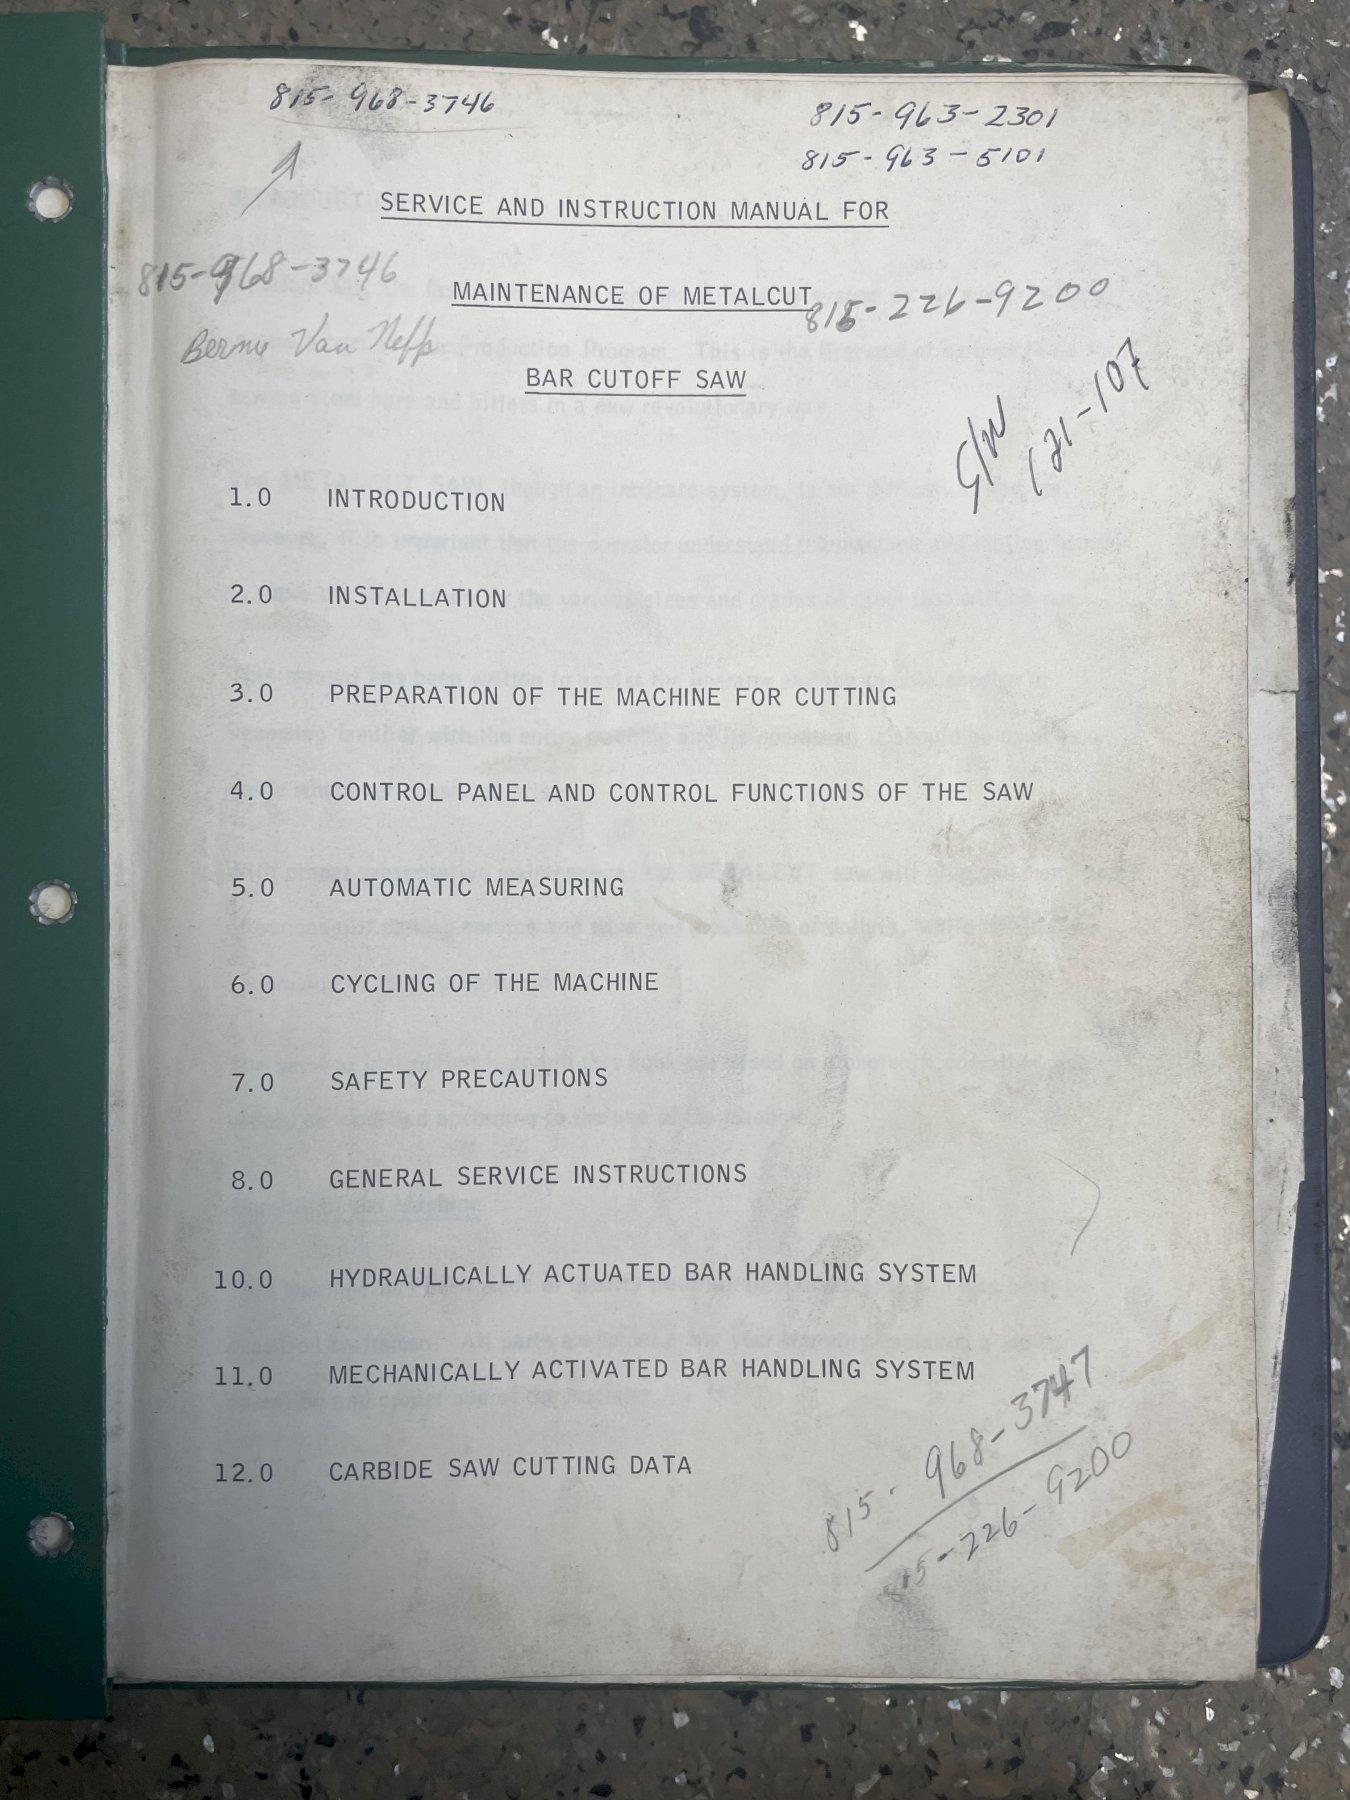 815-968-3746
815-963-2301
815-963-5101
SERVICE AND INSTRUCTION MANUAL FOR
815-968-3746
MAINTENANCE OF METALCUT
815-226-9200
Bernie Van
BAR CUTOFF SAW
S/N
121-107
1.0 INTRODUCTION
2.0 INSTALLATION
3.0 PREPARATION OF THE MACHINE FOR CUTTING
4.0 CONTROL PANEL AND CONTROL FUNCTIONS OF THE SAW
5.0 AUTOMATIC MEASURING
6.0 CYCLING OF THE MACHINE
7.0 SAFETY PRECAUTIONS
8.0 GENERAL SERVICE INSTRUCTIONS
10.0 HYDRAULICALLY ACTUATED BAR HANDLING SYSTEM
11.0 MECHANICALLY ACTIVATED BAR HANDLING SYSTEM
12.0 CARBIDE SAW CUTTING DATA
815-968-3747
815-226-9200